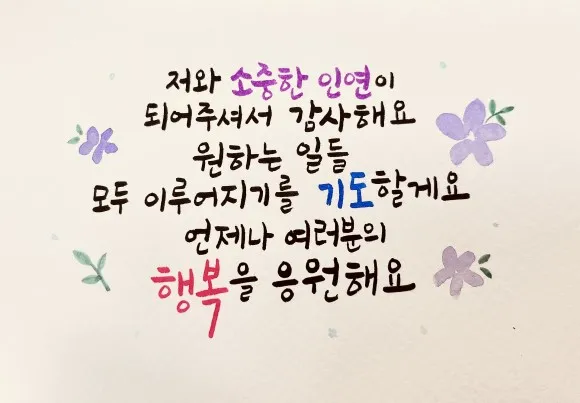 저와 소중한 인연이
되어주셔서 감사해요
원하는 일들
모두 이루어지기를 기도할게요
언제나 여러분의
행복을 응원해요